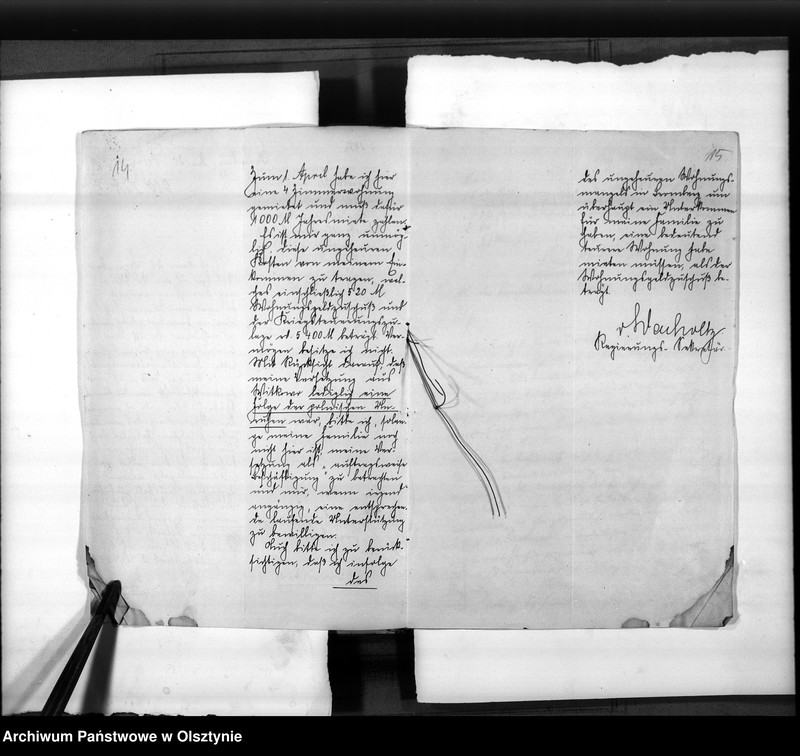 14
Zum 1. April habe ich hier
eine 4 Zimmerwohnung
gemietet und muß dafür
1000 M Jahresmiete zahlen.
Es ist mir ganz unmög-
lich diese ungeheuren
Kosten von meinem Ein-
kommen zu tragen, wel-
ches einschließlich 520 M
Wohnungsgeldzuschuß und
der Kriegsteuerungszu-
lage rd. 5400 M beträgt. Ver-
mögen besitze ich nicht.
Mit Rücksicht darauf, daß
meine Versetzung aus
Witkowo lediglich eine
Folge der polnischen Un-
ruhen war, bitte ich, solan-
ge meine Familie noch
nicht hier ist, meine Ver-
setzung als „auftragsweise
Beschäftigung" zu betrachten
und mir, wenn irgend
angängig, eine entsprechen-
de laufende Unterstützung
zu bewilligen.
Auch bitte ich zu berück-
sichtigen, daß ich infolge
des
15
des ungeheuren Wohnungs-
mangels in um
überhaupt ein Unterkommen
für meine Familie zu
haben, eine bedeutend
teurere Wohnung habe
mieten müssen, als der
Wohnungsgeldzuschuß be-
trägt.
Regierungs-Sekretär.
Archiwum Państwowe w Olsztynie